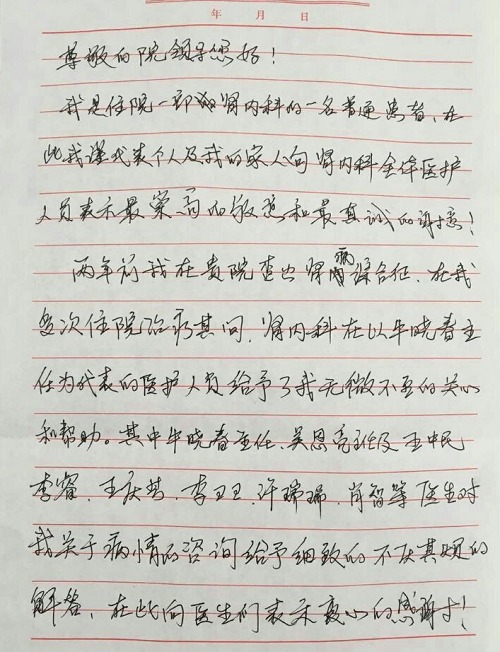 年 月 日
尊敬的院领导您好！
我是住院一部肾内科的一名普通患者，在
此我谨代表个人及我的家人向肾内科全体医护
人员表示最崇高的敬意和最真诚的谢意！
两年前我在贵院查出肾病综合征，在我
多次住院治疗其间，肾内科在以牛晓春主
任为代表的医护人员给予了我无微不至的关心
和帮助。其中牛晓春主任、吴恩亮主任及王中民
李睿、王庆、李卫卫、许瑞瑞、肖智等医生对
我关于病情的咨询给予细致的不厌其烦的
解答，在此向医生们表示衷心的感谢！